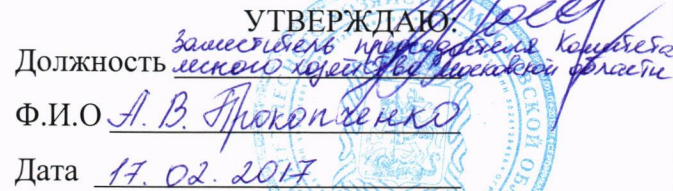 УТВЕРЖДАЮ:
заместитель председателя Комитета
Должность лесного хозяйства Московской области
Ф.И.О А. В. Прокопченко
Дата 17. 02. 2017